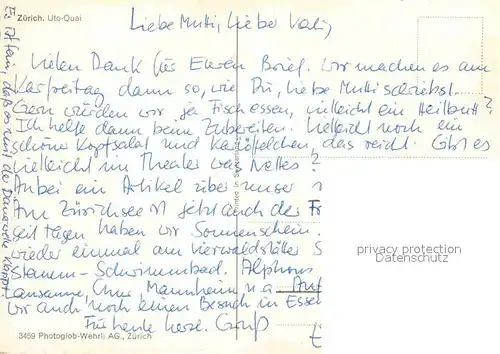 Zürich. Uto-Quai
Liebe Mutti, Lieber Vati,
Vielen Dank für Euren Brief. Wir machen es am
Karfreitag dann so, wie Du, liebe Mutti schreibst.
Gern würden wir ja Fisch essen, vielleicht ein Heilbutt?
Ich helfe dann beim Zubereiten. Vielleicht noch ein
schöner Kopfsalat und Kartöffelchen, das reicht. Gibt es
vielleicht im Theater was Nettes?
Anbei ein Artikel über unser
Am Zürichsee ist jetzt auch der
seit Tagen haben wir Sonnenschein.
wieder einmal am Vierwaldstätter S
Stamm-Schwimmbad. Alphons
Lausanne, Mannheim u.a.
wir auch noch einen Besuch in Essen
Für heute herzl. Gruß
3459 Photoglob-Wehrli AG., Zürich
daß es mit der Dauerwelle klappt
privacy protection
Datenschutz